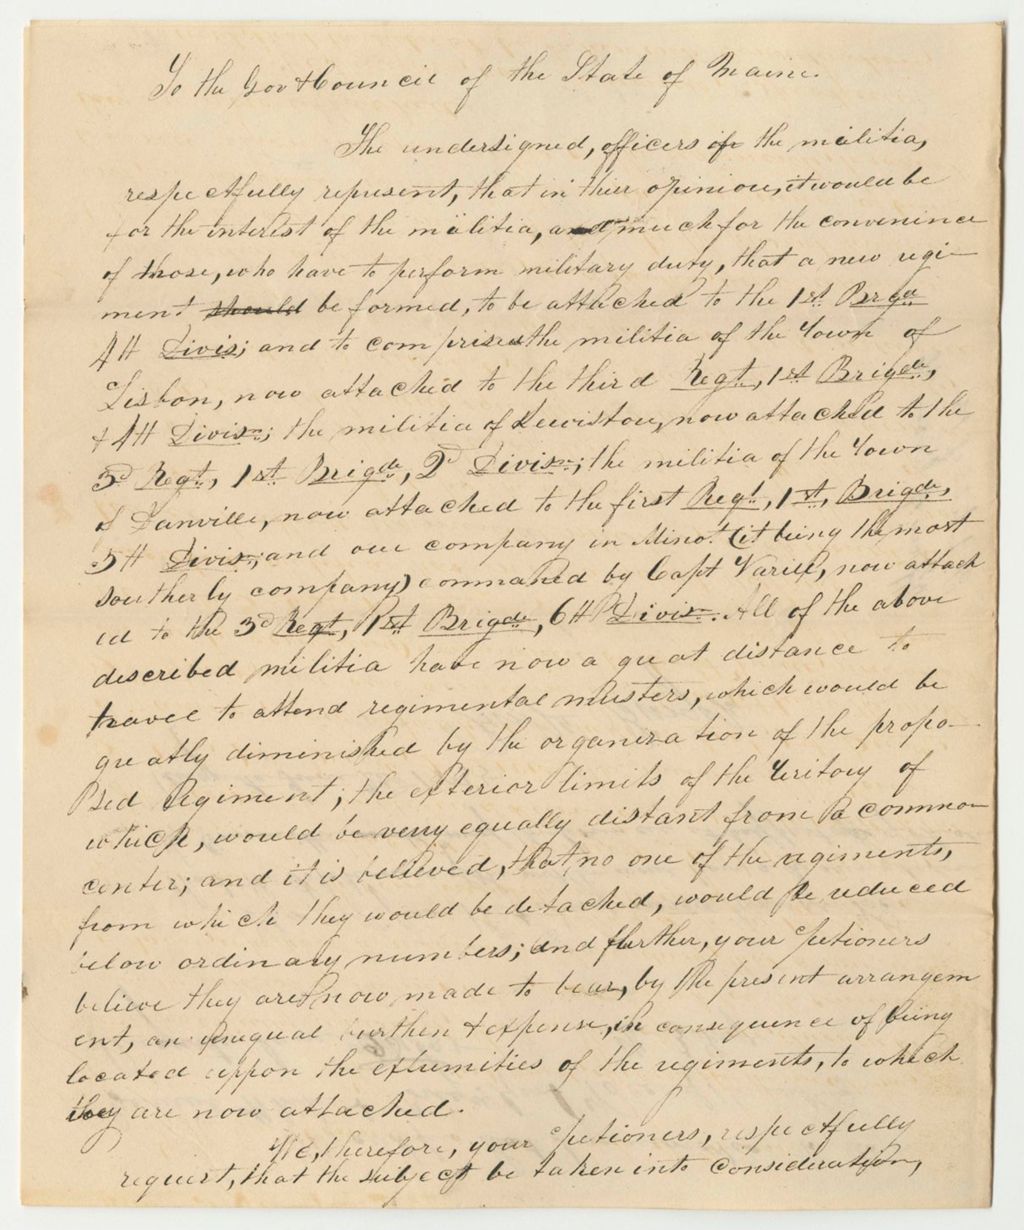 To the Gov & Council of the State of Maine.
The undersigned, officers in the militia,
respectfully represent, that in thier opinion, it would be
for the interest of the militia, and much for the convenince
of those, who have to perform military duty, that a new regi-
ment should be formed, to be attached to the 1st. Brgd
4th Divis; and to comprise the militia of the Town of
Lisbon, now attached to the third Regt, 1st Brigde,
& 4th Divisn; the militia of Lewiston, now attached to the
3d Regt. 1st Brigde, 2d Divisn; the militia of the Town
of Danville, now attached to the first Regt, 1st, Brigde,
5th Divisn; and one company in Minot (it being the most
southerly company) commaned by Capt Varill, now attach
ed to the 3d Regt, 1st Brigde, 6th Divisn. All of the above
described militia have now a great distance to
travel to attend regimental musters, which would be
greatly diminished by the organization of the propo-
sed Regiment; the exterior limits of the teritory of
which, would be very equally distant from a common
center; and it is believed, that no one of the regiments,
from which they would be detached, would be reduced
below ordinary numbers; and further, your petioners
believe they are now made to bear, by the present arrangem
ent, an unequal burthen & expense, in consequence of being
located uppon the extremities of the regiments, to which
they are now attached.
We, therefore, your petioners, respectfully
request, that the subject be taken into consideration,